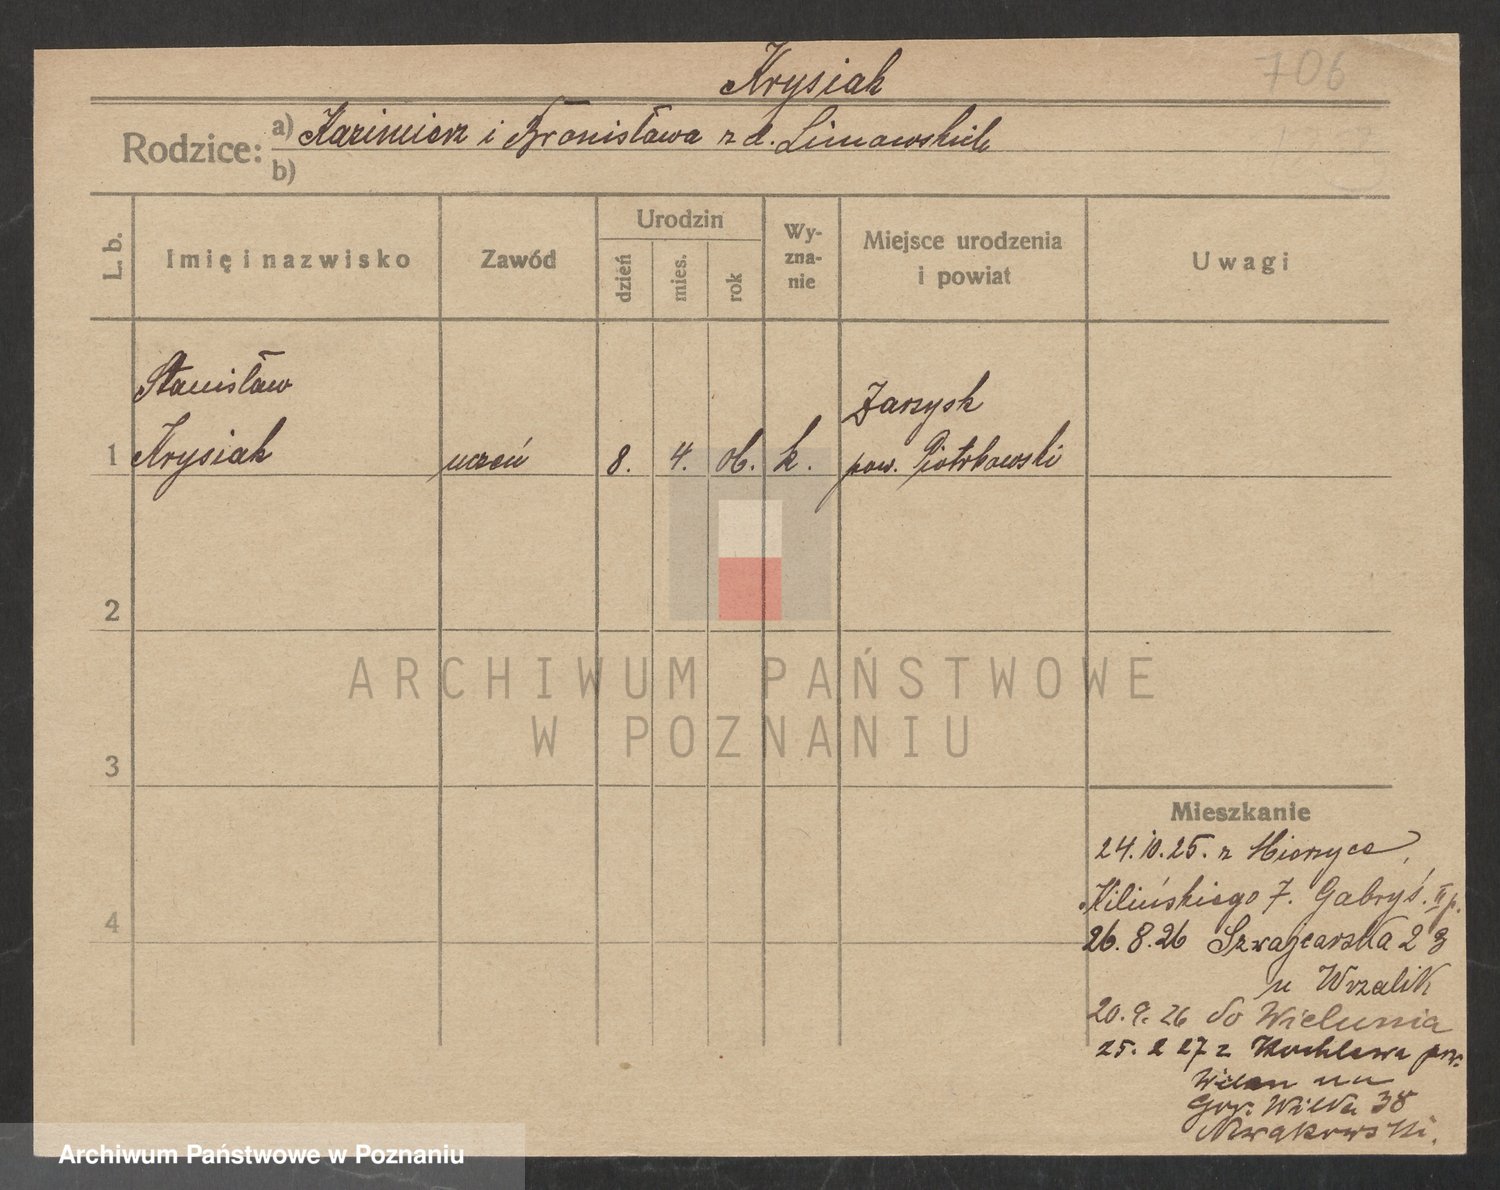 706
Krysiak
Rodzice: a) Kazimierz i Bronisława z d. Limowskich
b)
L. b.
Imię i nazwisko
Zawód
Urodzin
dzień
mies.
rok
Wy-
zna-
nie
Miejsce urodzenia
i powiat
Uwagi
Stanisław
Zarzysk
1 Krysiak uczeń 8. 4. 06. k. pow. Piotrkowski
2
ARCHIWUM PAŃSTWOWE
W POZNANIU
3
Mieszkanie
24.10.25. z
Kilińskiego 7. Gabryś. II p.
4
26.8.26 Szwajcarska 23
u Wrzalik
20.9.26 do Wielunia
25.2 27 z Kochlewa pow.
Wieluń na
Gór. Wilda 38
Nowakowski.
Archiwum Państwowe w Poznaniu